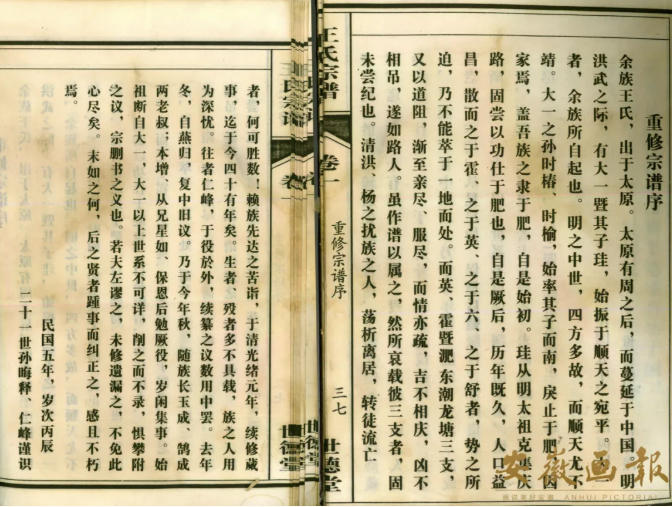 重修宗谱序
余族王氏，出于太原。太原有周之后，而蔓延于中国。明
洪武之际，有大一暨其子珪，始振于顺天之宛平。
者，余族所自起也。明之中世，四方多故，而顺天尤不
靖。大一之孙时椿、时榆，始率其子而南，戾止于肥，因
家焉，盖吾族之隶于肥，自是始初。珪从明太祖克
路，固尝以功仕于肥也，自是厥后，历年既久，人口益
昌，散而之于霍、之于英、之于六、之于舒者，势之所
迫，乃不能萃于一地而处。而英、霍暨淝东潮龙塘三支，
又以道阻，渐至亲尽、服尽，而情亦疏，吉不相庆，凶不
相吊，遂如路人。虽作谱以属之，然所哀载彼三支者，固
未尝纪也。清洪、杨之扰族之人，荡析离居，转徙流亡
王氏宗谱
卷一
重修宗谱序
三七
世德堂
者，何可胜数！赖族先达之苦诣，于清光绪元年，续修蒇
事，迄于今四十有年矣。生者、殁者多不具载，族之人用
为深忧。往者仁峰，于役於外，续纂之议数用中罢。去年
冬，自燕归，复中旧议。乃于今年秋，随族长玉成、鹄成
两老叔，本增、从兄星如、保恩后勉厥役，岁闲集事。始
祖断自大一，大一以上世系不可详，削之而不录，惧攀附
之议，宗鹏书之义也。若夫左谬之，未修遗漏之，不免此
心尽矣。未如之何，后之贤者踵事而纠正之，感且不朽
焉。
民国五年，岁次丙辰
二十一世孙晦释、仁峰谨识
世德堂
安徽画报
ANHUI PICTORIAL